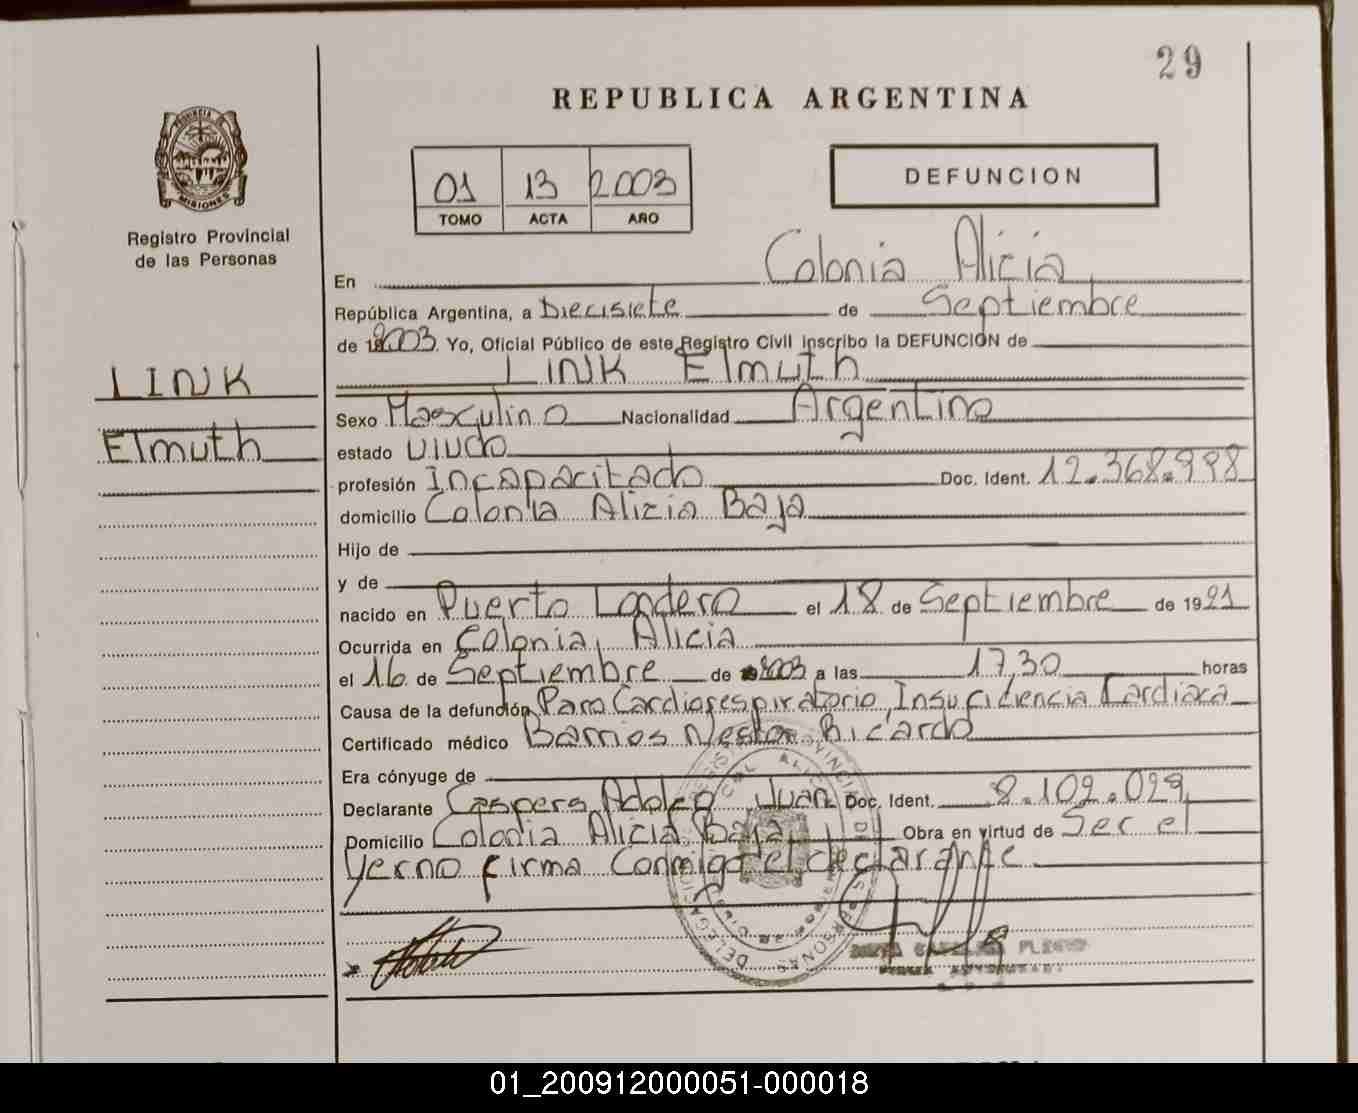 29
REPUBLICA ARGENTINA
01 13 2003
TOMO ACTA AÑO
DEFUNCION
PROVINCIA DE
MISIONES
Registro Provincial
de las Personas
LINK
Elmuth
En Colonia Alicia
República Argentina, a Diecisiete de Septiembre
de 2003. Yo, Oficial Público de este Registro Civil inscribo la DEFUNCION de
LINK Elmuth
Sexo Masculino Nacionalidad Argentino
estado Viudo
profesión Incapacitado Doc. Ident. 12.368.998
domicilio Colonia Alicia Baja
Hijo de
y de
nacido en Puerto Londero el 18 de Septiembre de 1921
Ocurrida en Colonia Alicia
el 16 de Septiembre de 2003 a las 17,30 horas
Causa de la defunción Paro Cardiorespiratorio, Insuficiencia Cardiaca
Certificado médico Barrios Nestor Ricardo
Era cónyuge de
Declarante Caspers Adolfo Juan Doc. Ident. 8.102.029
Domicilio Colonia Alicia Baja, Obra en virtud de Ser el
Yerno firma Conmigo el declarante
01_200912000051-000018